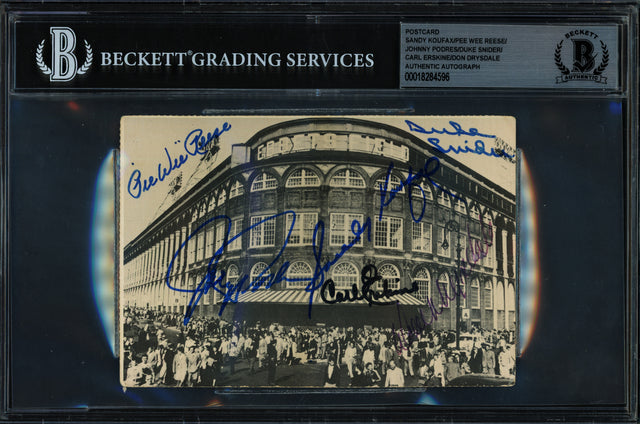 BECKETT® GRADING SERVICES
POSTCARD
SANDY KOUFAX/PEE WEE REESE/
JOHNNY PODRES/DUKE SNIDER/
CARL ERSKINE/DON DRYSDALE
AUTHENTIC AUTOGRAPH
00018284596
BECKETT
AUTHENTIC
B
B
Pee Wee Reese
Duke
Snider
Sandy Koufax
Johnny Podres
Carl Erskine
Don Drysdale